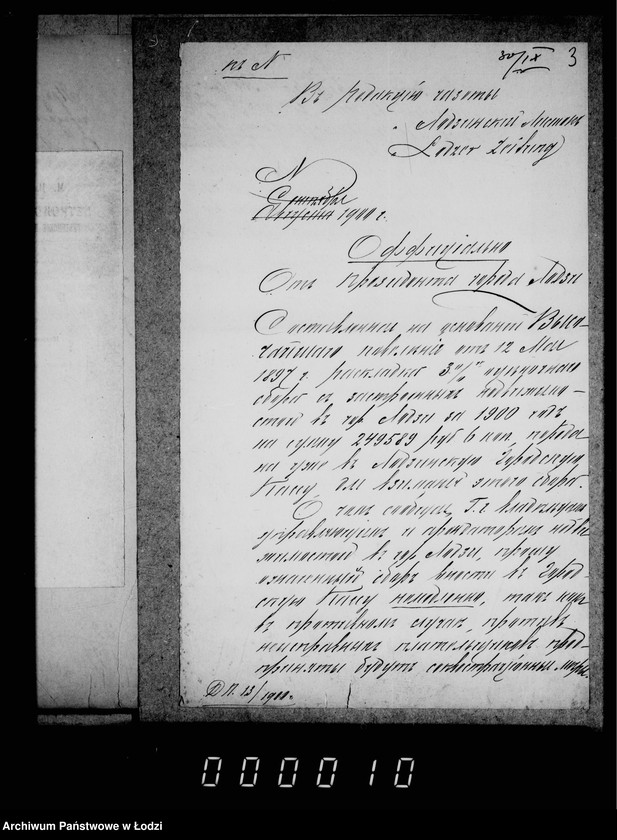 къ N
30/IX 3
Въ Редакцію газеты
Лодзинскій Листокъ
Lodzer Zeitung
N
Сентября
Августа 1900 г.
Оффиціально
Отъ Президента города Лодзи
Составленная на основаніи Высо-
чайшаго повелѣнія отъ 12 Мая
1897 г. раскладка 3% аго
сбора съ застроенныхъ недвижимо-
стей въ гор. Лодзи за 1900 годъ
на сумму 249589 руб 6 коп. переда
на уже въ Лодзинскую Городскую
Кассу для взиманія этого сбора.
О чемъ сообщая Г.г. владѣльцамъ
управляющимъ и арендаторамъ недви
жимостей въ гор. Лодзи, прошу
означенный сборъ внести въ Город-
скую Кассу немедленно, такъ какъ
въ противномъ случаѣ, противъ
неисправныхъ плательщиковъ пред-
приняты будутъ мѣры.
Д.П. 13/1900 г.
000010
Archiwum Państwowe w Łodzi